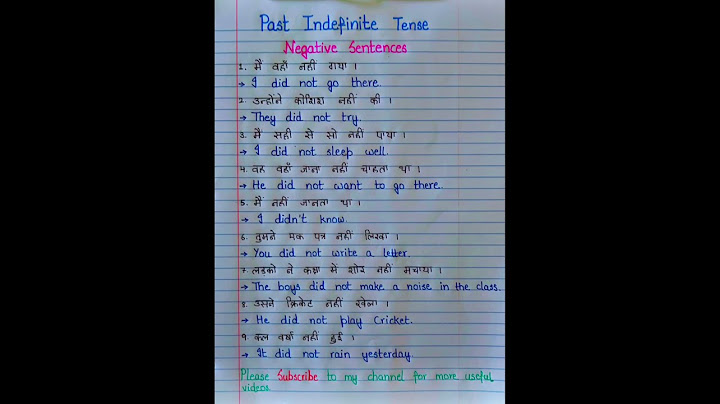 Past Indefinite Tense
Negative Sentences
1. मैं वहाँ नहीं गया ।
→ I did not go there.
2. उन्होंने कोशिश नहीं की ।
→ They did not try.
3. मैं सही से सो नहीं पाया ।
→ I did not sleep well.
4. वह वहाँ जाना नहीं चाहता था ।
→ He did not want to go there.
5. मैं नहीं जानता था ।
→ I didn't know.
6. तुमने एक पत्र नहीं लिखा ।
→ You did not write a letter.
7. लडको ने कक्षा में शोर नहीं मचाया ।
→ The boys did not make a noise in the class.
8. उसने क्रिकेट नहीं खेला ।
→ He did not play Cricket.
9. कल वर्षा नहीं हुई ।
→ It did not rain yesterday.
Please Subscribe to my channel for more useful
videos